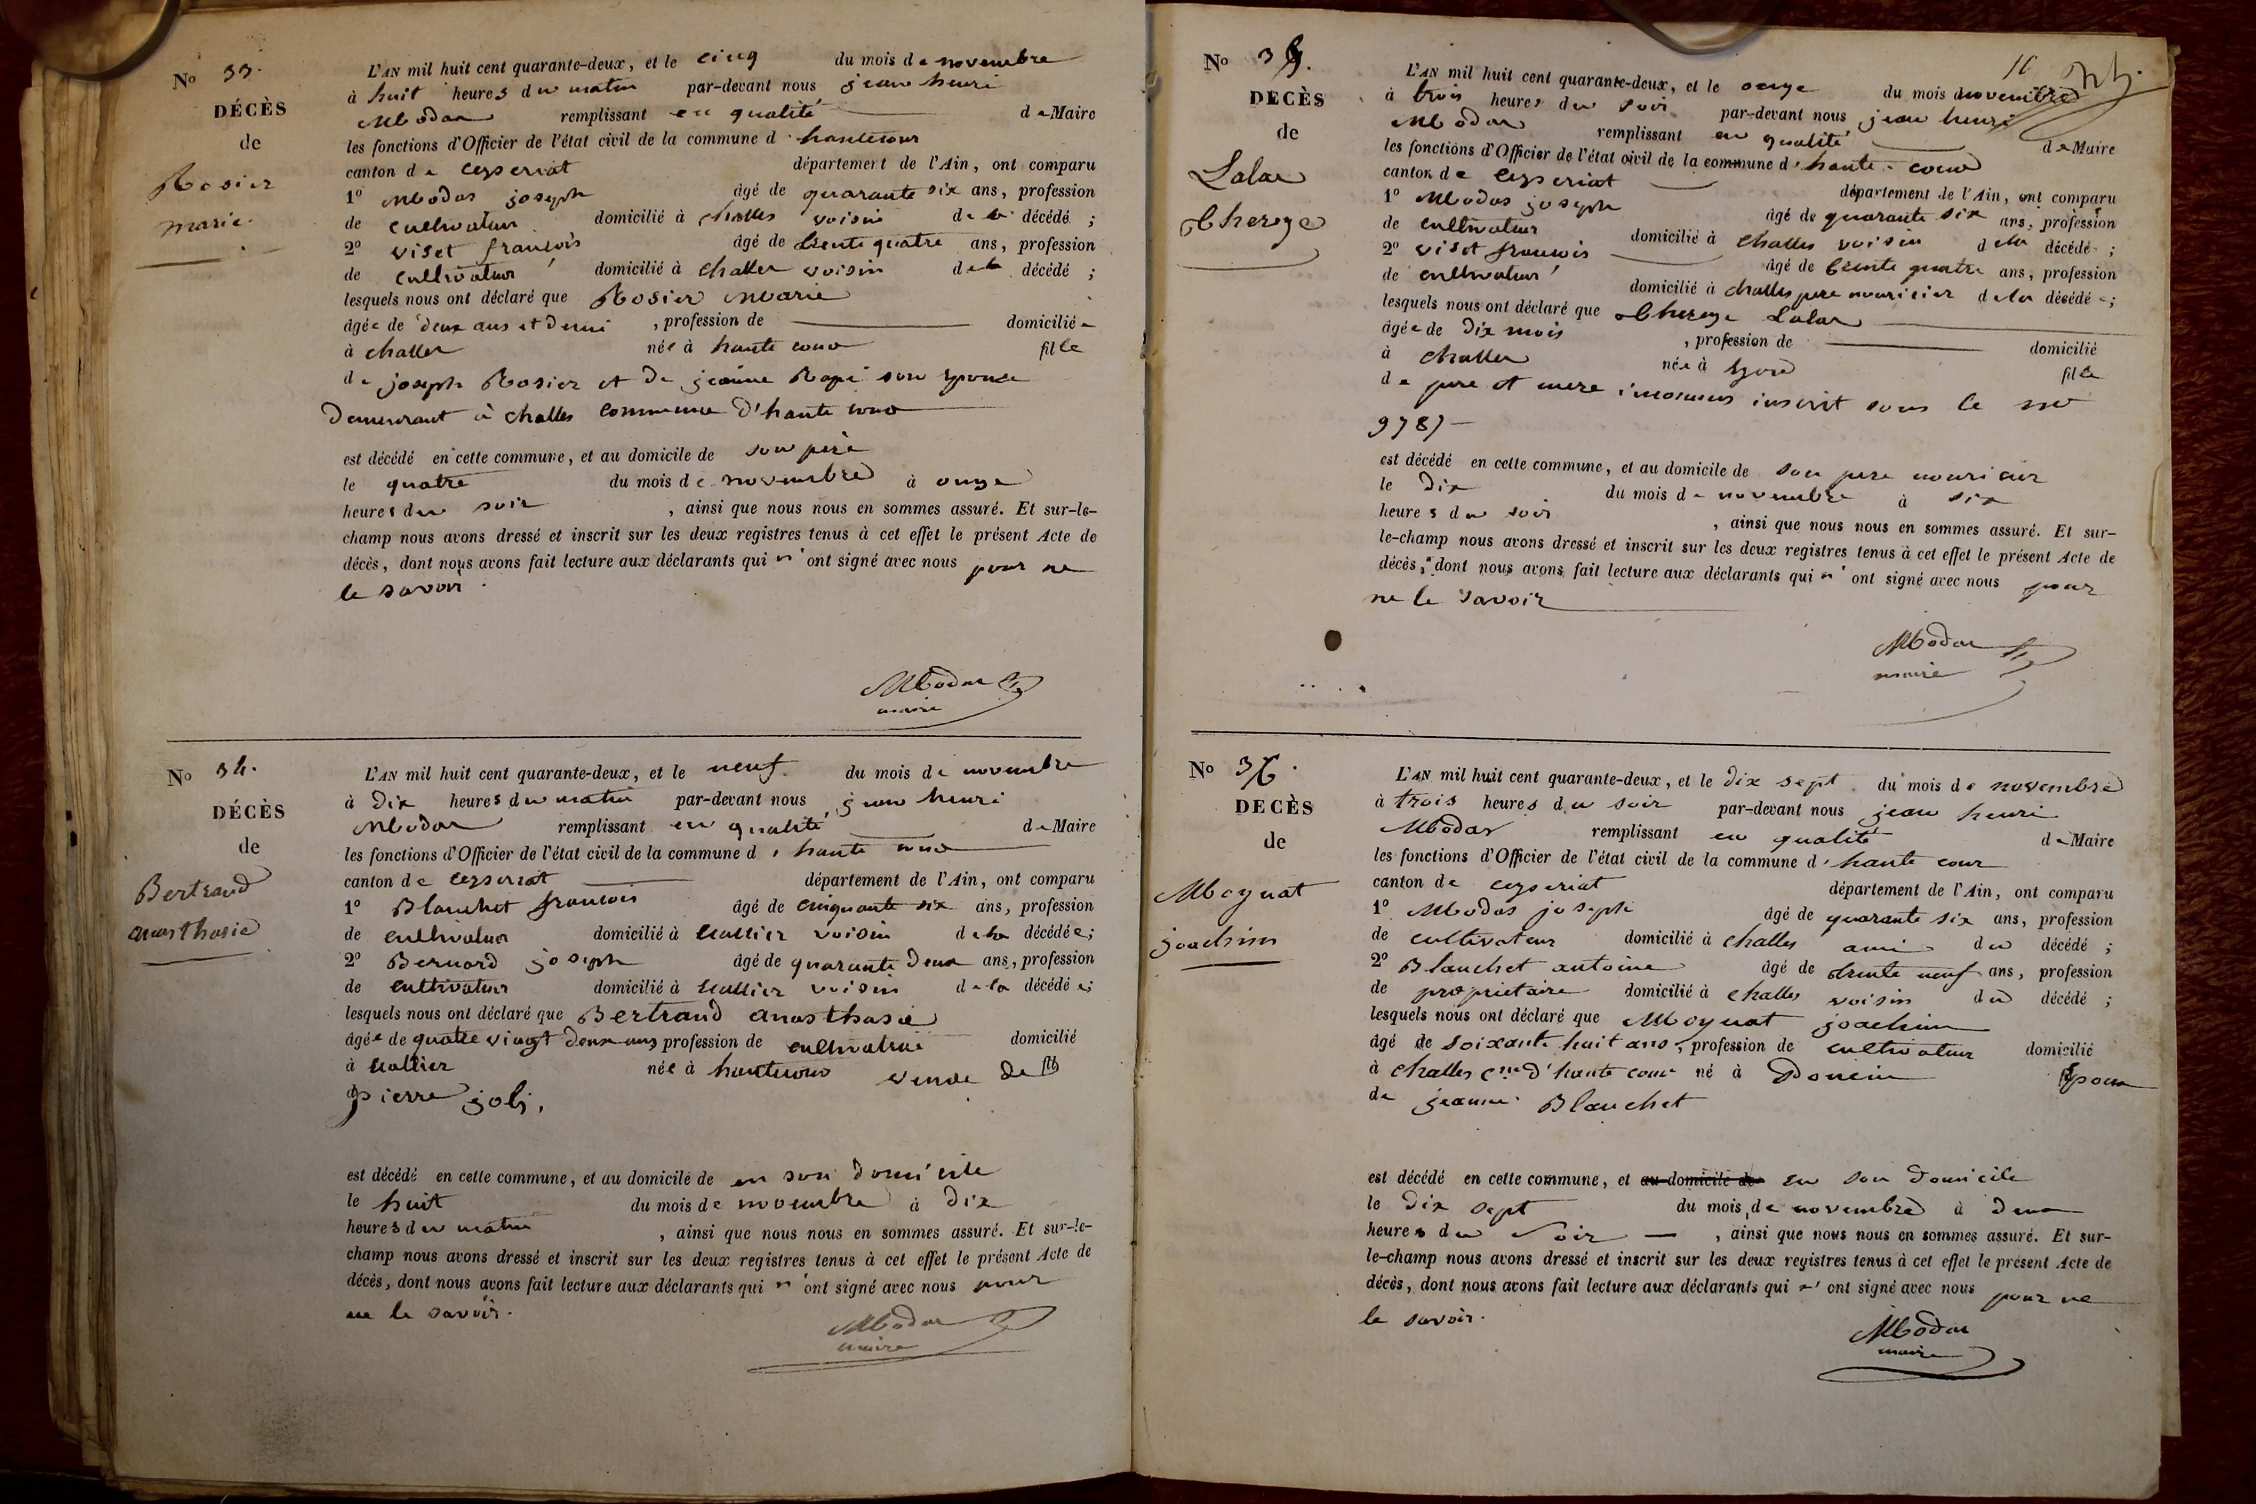 No 33.
DÉCÈS
de
Rosier
marie.
L'AN mil huit cent quarante-deux, et le cinq du mois de novembre
à huit heures du matin par-devant nous jean henri
Modas remplissant en qualité de Maire
les fonctions d'Officier de l'état civil de la commune d'hautecour
canton de ceyseriat département de l'Ain, ont comparu
1o Modas joseph âgé de quarante six ans, profession
de cultivateur domicilié à challes voisin de la décédé ;
2o viset françois âgé de trente quatre ans, profession
de cultivateur domicilié à challes voisin de la décédé ;
lesquels nous ont déclaré que Rosier Marie
âgée de deux ans et demi , profession de domiciliée
à challes née à haute cour fille
de joseph Rosier et de jeanne son epouse
Demeurant à challes commune d'haute cour
est décédé en cette commune, et au domicile de son père
le quatre du mois de novembre à onze
heures du soir , ainsi que nous nous en sommes assuré. Et sur-le-
champ nous avons dressé et inscrit sur les deux registres tenus à cet effet le présent Acte de
décès, dont nous avons fait lecture aux déclarants qui n'ont signé avec nous pour ne
le savoir.
Modas
maire
No 34.
DÉCÈS
de
Bertrand
anasthasie
L'AN mil huit cent quarante-deux, et le neuf du mois de novembre
à dix heures du matin par-devant nous jean henri
Modas remplissant en qualité de Maire
les fonctions d'Officier de l'état civil de la commune d'haute cour
canton de ceyseriat département de l'Ain, ont comparu
1o Blanchet françois âgé de cinquante six ans, profession
de cultivateur domicilié à voisin de la décédée;
2o Bernard joseph âgé de quarante deux ans, profession
de cultivateur domicilié à voisin de la décédée;
lesquels nous ont déclaré que Bertrand anasthasie
âgée de quatre vingt deux ans profession de domicilié
à née à hautecour veuve de
pierre joly,
est décédé en cette commune, et au domicile de en son domicile
le huit du mois de novembre à dix
heures du matin , ainsi que nous nous en sommes assuré. Et sur-le-
champ nous avons dressé et inscrit sur les deux registres tenus à cet effet le présent Acte de
décès, dont nous avons fait lecture aux déclarants qui n'ont signé avec nous pour
ne le savoir.
Modas
maire
No 35.
DECÈS
de
Lalar
L'AN mil huit cent quarante-deux, et le onze du mois de novembre
à trois heures du soir par-devant nous jean henri
Modas remplissant en qualité de Maire
les fonctions d'Officier de l'état civil de la commune d'haute-cour
canton de ceyseriat département de l'Ain, ont comparu
1o Modas joseph âgé de quarante six ans, profession
de cultivateur domicilié à challes voisin de la décédé ;
2o viset francois âgé de trente quatre ans, profession
de cultivateur domicilié à challes pere nouricier de la décédée;
lesquels nous ont déclaré que Lalar
âgée de dix mois , profession de domicilié
à challes née à lyon fille
de pere et mere inconnus inscrit sous le no
9787
est décédé en cette commune, et au domicile de son pere nouricier
le dix du mois de novembre à six
heures du soir , ainsi que nous nous en sommes assuré. Et sur-
le-champ nous avons dressé et inscrit sur les deux registres tenus à cet effet le présent Acte de
décès, dont nous avons fait lecture aux déclarants qui n'ont signé avec nous pour
ne le savoir
Modas
maire
No 36.
DECÈS
de
Moynat
joachim
L'AN mil huit cent quarante-deux, et le dix sept du mois de novembre
à trois heures du soir par-devant nous jean henri
Modas remplissant en qualité de Maire
les fonctions d'Officier de l'état civil de la commune d'haute cour
canton de ceyseriat département de l'Ain, ont comparu
1o Modas joseph âgé de quarante six ans, profession
de cultivateur domicilié à challes ami du décédé ;
2o Blanchet antoine âgé de trente neuf ans, profession
de proprietaire domicilié à challes voisin du décédé ;
lesquels nous ont déclaré que Moynat joachim
âgé de soixante huit ans, profession de cultivateur domicilié
à challes cne d'haute cour né à Doucin Epoux
de jeanne Blanchet
est décédé en cette commune, et au domicile de en son domicile
le dix sept du mois de novembre à deux
heures du soir , ainsi que nous nous en sommes assuré. Et sur-
le-champ nous avons dressé et inscrit sur les deux registres tenus à cet effet le présent Acte de
décès, dont nous avons fait lecture aux déclarants qui n'ont signé avec nous pour ne
le savoir.
Modas
maire